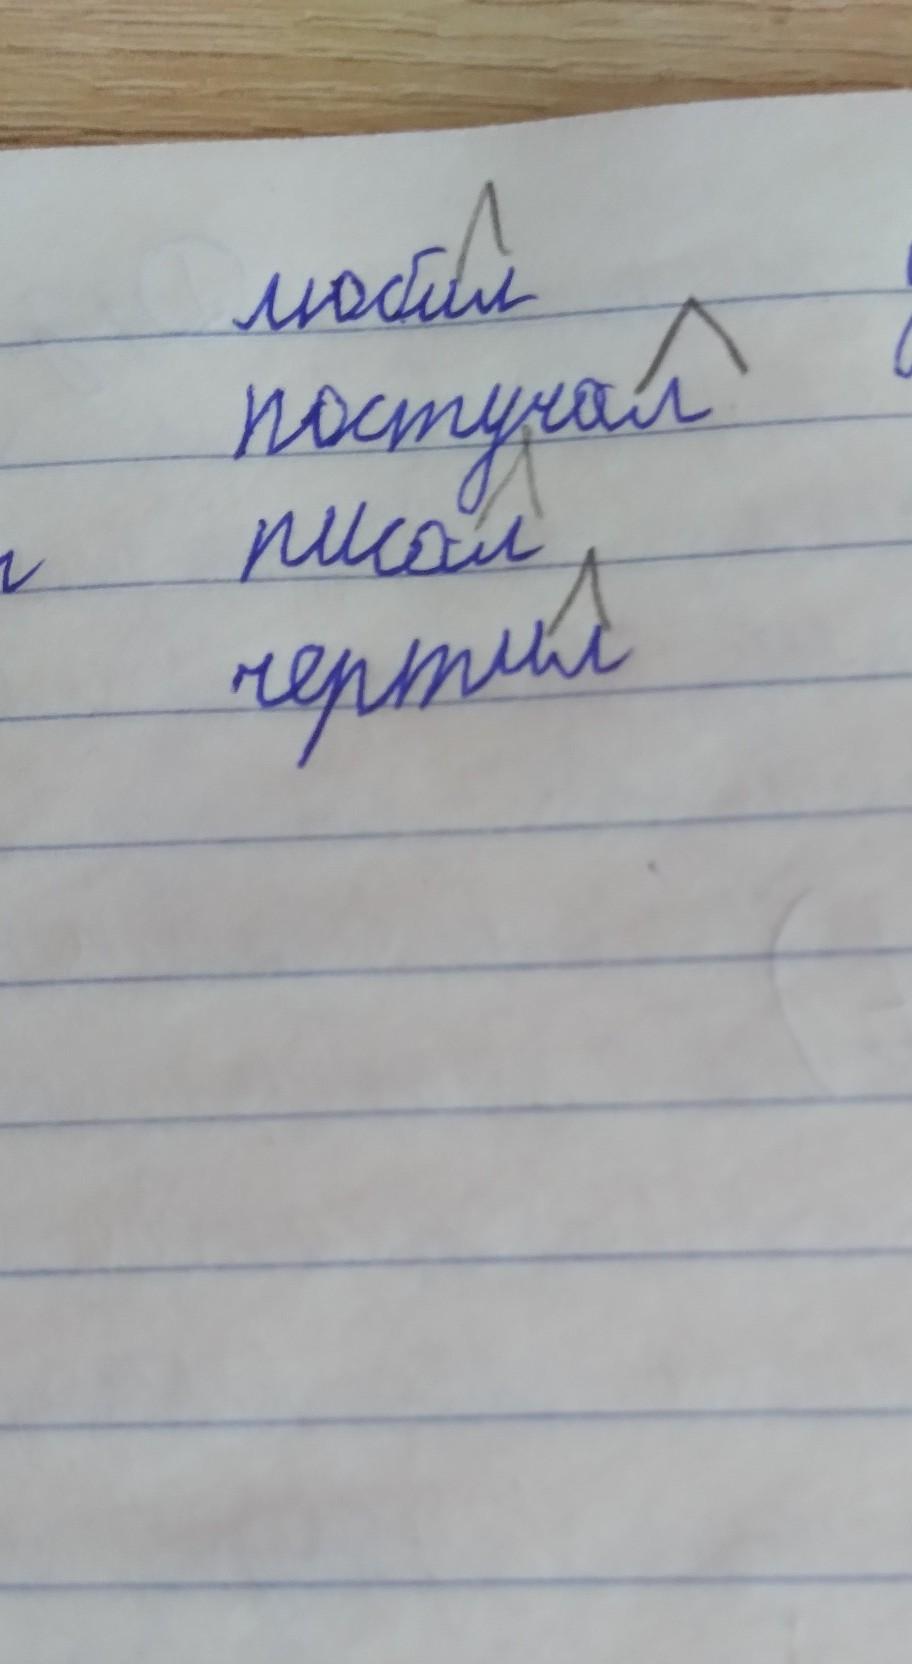 любил
постучал
писал
чертил